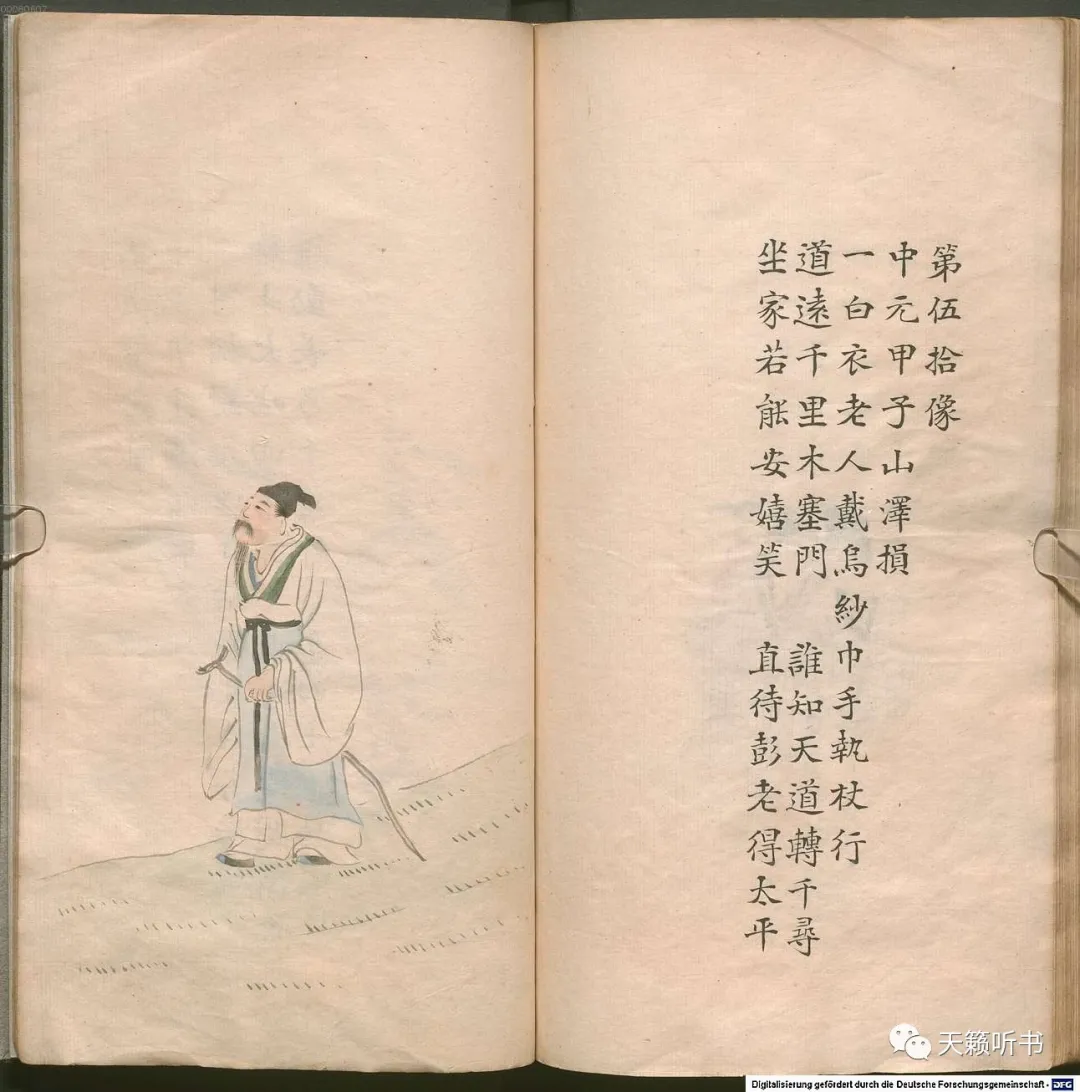 00080607
第伍拾像
中元甲子山澤損
一白衣老人戴烏紗巾手執杖行
道遠千里木塞門 誰知天道轉千尋
坐家若能安嬉笑 直待彭老得太平
天籁听书
Digitalisierung gefördert durch die Deutsche Forschungsgemeinschaft - DFG